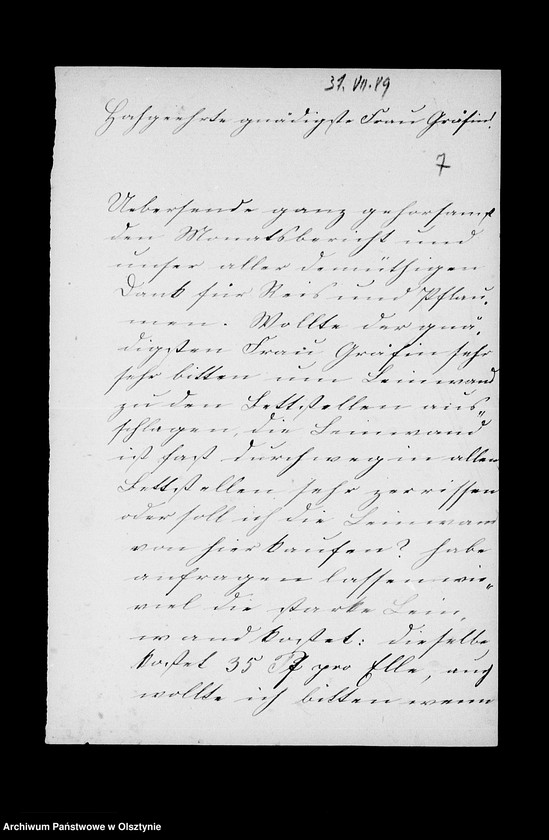 31. VII. 89
Hochgeehrte gnädigste Frau Gräfin!
7
Uebersende ganz gehorsamst
den Monatsbericht und
unser aller demüthigen
Dank für Reis und Pflau„
men. Wollte der gnä„
digsten Frau Gräfin sehr
sehr bitten um Leinwand
zu den Bettstellen aus„
schlagen, die Leinwand
ist fast durchweg in allen
Bettstellen sehr zerrissen
oder soll ich die Leinwand
von hier kaufen? habe
anfragen lassen wie„
viel die starke Lein„
wand kostet: dieselbe
kostet 35 Pf pro Elle, auch
wollte ich bitten wenn
Archiwum Państwowe w Olsztynie